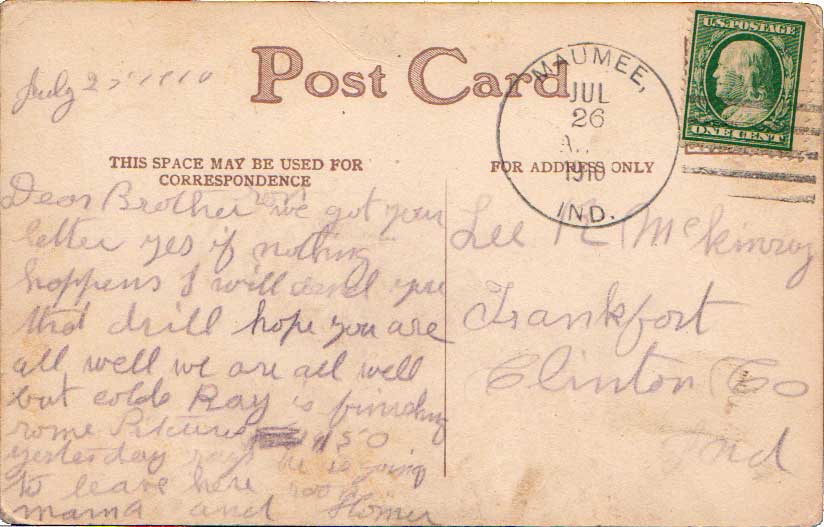 July 25 1910
Post Card
MAUMEE,
JUL
26
1910
IND.
U.S. POSTAGE
ONE CENT
THIS SPACE MAY BE USED FOR
CORRESPONDENCE
FOR ADDRESS ONLY
Dear Brother we got your
letter yes if nothing
happens I will send you
that drill hope you are
all well we are all well
but colds Ray is finishing
some Pictures 1150
yesterday says he is going
to leave here soon
mama and Homer
Lee R. McKinzey
Frankfort
Clinton Co
Ind